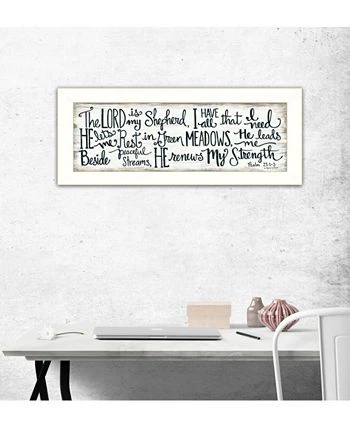 The LORD is my Shepherd, I HAVE all that I need
HE lets me Rest in Green MEADOWS, He leads me
Beside peaceful Streams, HE renews My Strength
Psalm 23:1-3